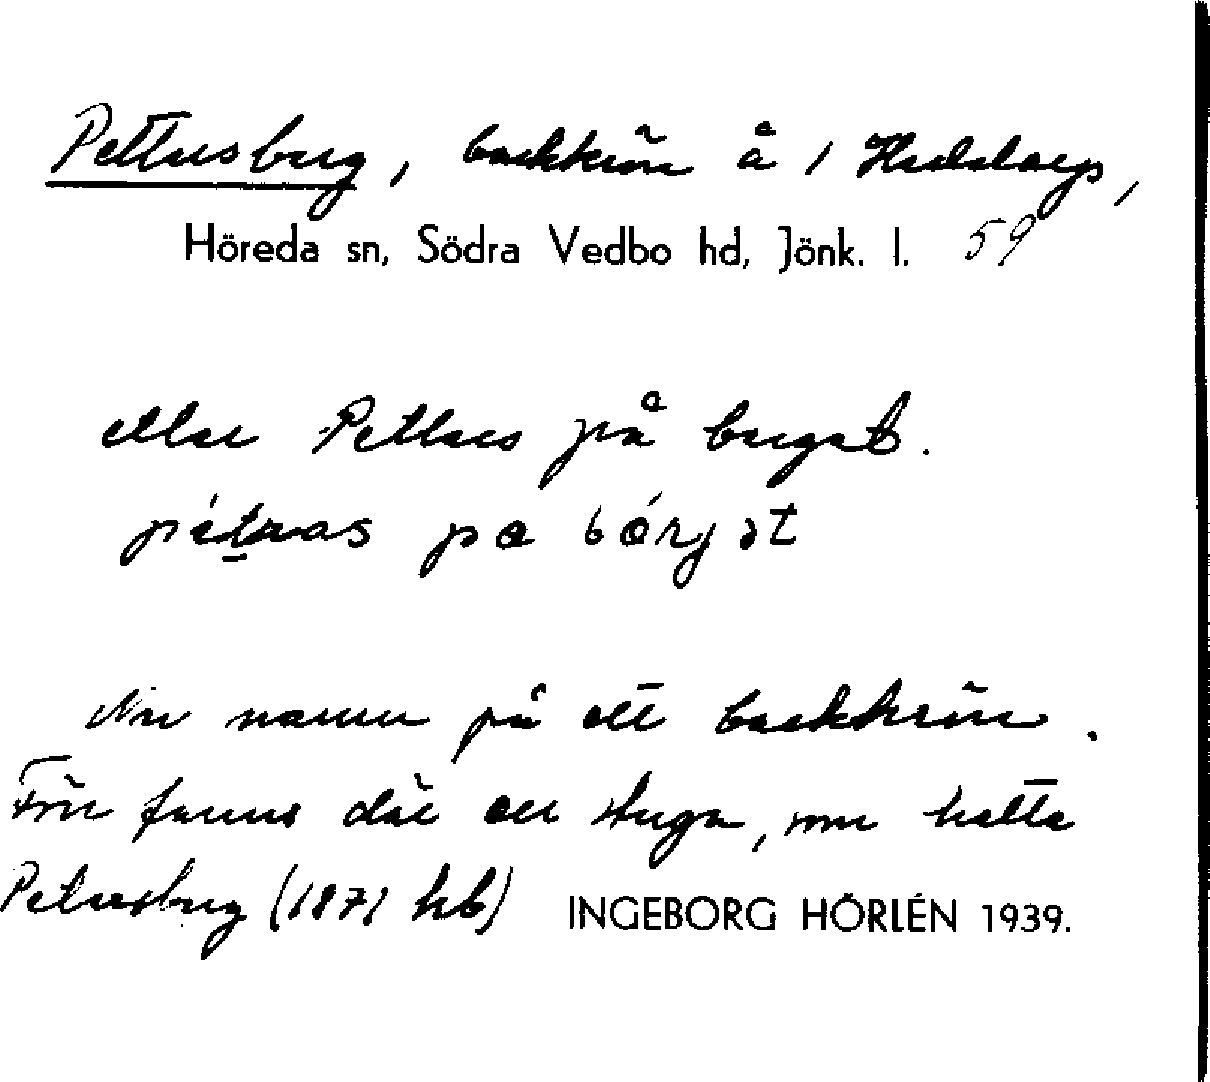 Pettersberg, backkrön å 1 Hulelarp,
Höreda sn, Södra Vedbo hd, Jönk. l. 59
eller Petters på berget.
pétras pa bérjət
Nu namn på ett backkrön.
Förr fanns där en stuga, som hette
Petersberg (1871 hb) INGEBORG HÖRLÉN 1939.